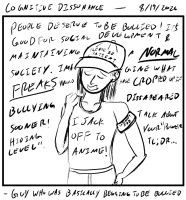 COGNITIVE DISSONANCE — 8/19/2020
PEOPLE DESERVE TO BE BULLIED! IT'S
GOOD FOR SOCIAL DEVELOPMENT &
MAINTAINING A NORMAL
SOCIETY. IMAGINE WHAT
FREAKS WOULD CROPPED UP IF
BULLYING DISAPPEARED
SOONER! TALK ABOUT
HIDING YOUR "POWER
LEVEL". TL;DR...
I JACK
OFF TO
ANIME!
- GUY WHO WAS BASICALLY BEGGING TO BE BULLIED